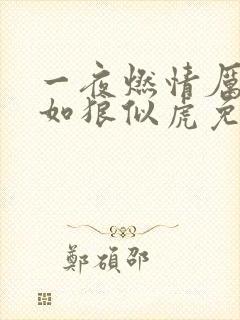 一夜燃情厲
如狼似虎免
鄭碩邵